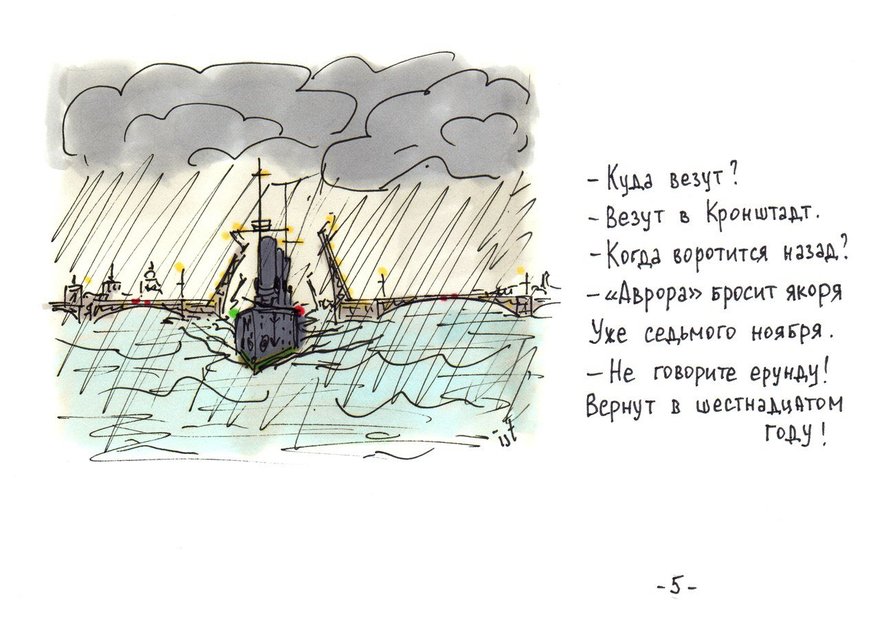 – Куда везут?
– Везут в Кронштадт.
– Когда воротится назад?
– «Аврора» бросит якоря
Уже седьмого ноября.
– Не говорите ерунду!
Вернут в шестнадцатом
году!
-5-